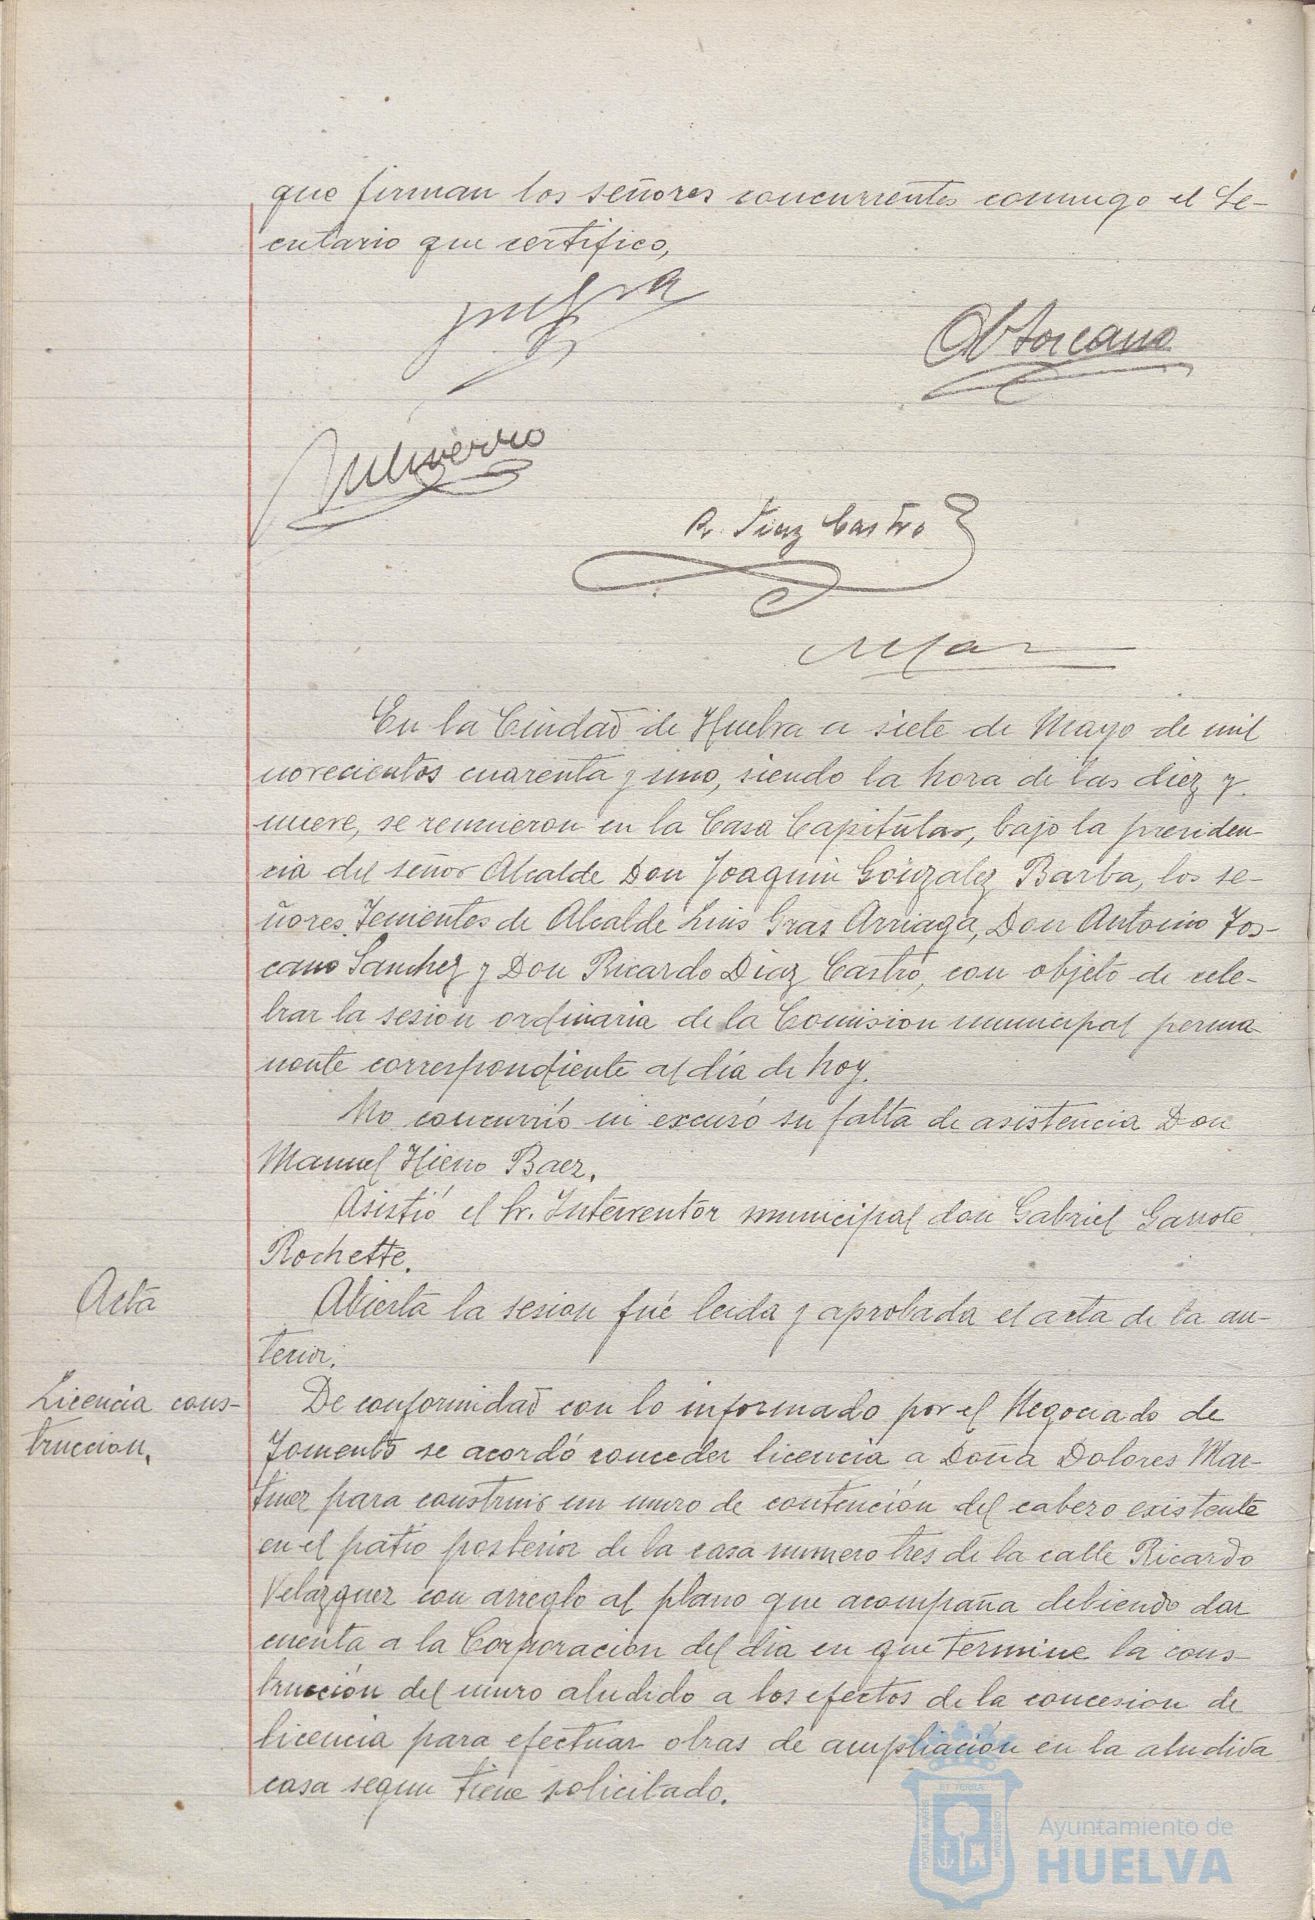 que firman los señores concurrentes conmigo el Se-
cretario que certifico,
A Toscano
R. Diaz Castro
En la Ciudad de Huelva a siete de Mayo de mil
novecientos cuarenta y uno, siendo la hora de las diez y
nueve, se reunieron en la Casa Capitular, bajo la presiden-
cia del señor Alcalde Don Joaquin González Barba, los se-
ñores Tenientes de Alcalde Luis Gras Arriaga, Don Antonio Tos-
cano Sanchez y Don Ricardo Diaz Castro, con objeto de cele-
brar la sesion ordinaria de la Comision municipal perma
nente correspondiente al día de hoy.
No concurrió ni excusó su falta de asistencia Don
Manuel Hierro Baez.
Asistió el Sr. Interventor municipal don Gabriel Garrote
Rochette.
Acta
Abierta la sesion fué leida y aprobada el acta de la an-
terior.
Licencia cons-
truccion.
De conformidad con lo informado por el Negociado de
Fomento se acordó conceder licencia a Doña Dolores Mar-
tinez para construir un muro de contención del cabezo existente
en el patio posterior de la casa numero tres de la calle Ricardo
Velázquez con arreglo al plano que acompaña debiendo dar
cuenta a la Corporacion del dia en que termine la cons-
trucción del muro aludido a los efectos de la concesion de
licencia para efectuar obras de ampliación en la aludida
casa segun tiene solicitado.
Ayuntamiento de
HUELVA